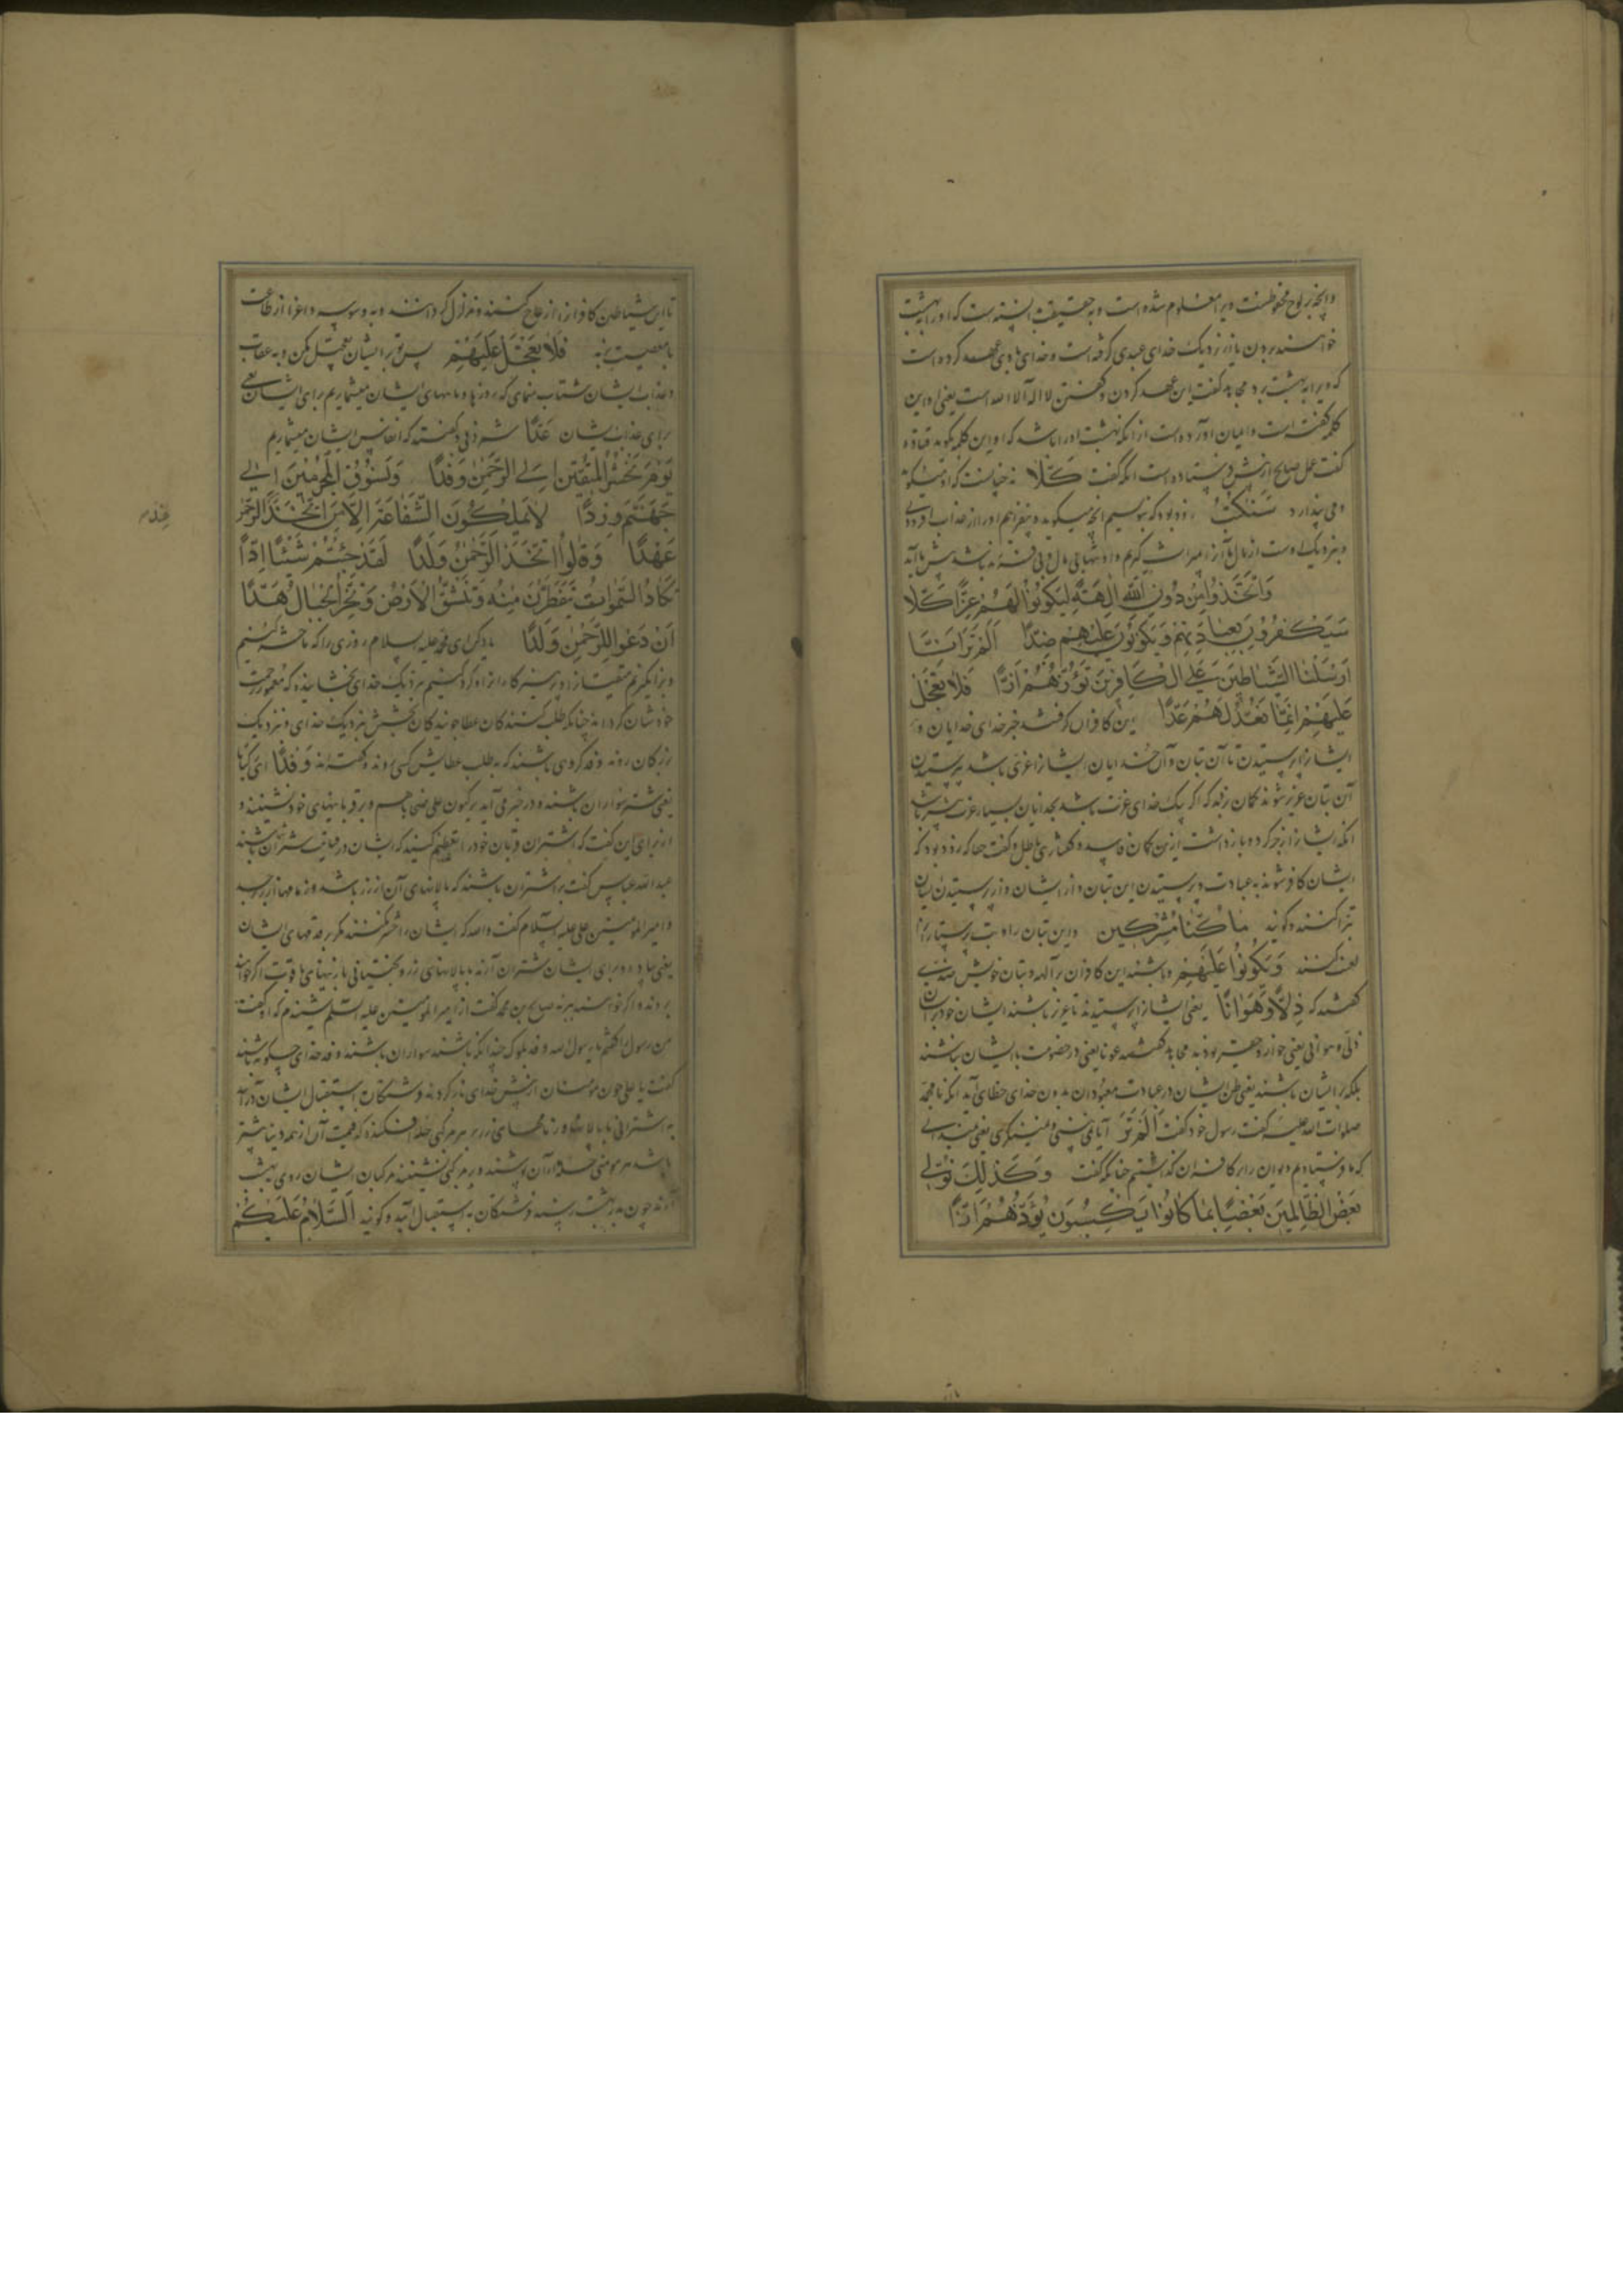 وانچه بر لوح محفوظست ویرا معلوم شده است و به حقیقت دانسته است که او را بهشت
خواهند بردن یا از نزدیک خدای عهدی گرفته است و خدای با وی عهد کرده است
که ویرا به بهشت برد مجاهد گفت این عهد کردن و گفتن لا اله الا الله است یعنی او این
کلمه گفته است و ایمان آورده است از انکه بهشت او را باشد که او این کلمه بگوید قتاده
گفت عمل صالح از پیش فرستاده است انکه گفت كَلَّا نه چنانست که او میگوید
و می پندارد سَنَكْتُبُ زود بود که بنویسیم انچه میگوید و بیفزاییم او را از عذاب افزودنی
وَاتَّخَذُوا مِنْ دُونِ اللَّهِ آلِهَةً لِيَكُونُوا لَهُمْ عِزًّا كَلَّا
سَيَكْفُرُونَ بِعِبَادَتِهِمْ وَيَكُونُونَ عَلَيْهِمْ ضِدًّا أَلَمْ تَرَ أَنَّا
أَرْسَلْنَا الشَّيَاطِينَ عَلَى الْكَافِرِينَ تَؤُزُّهُمْ أَزًّا فَلَا تَعْجَلْ
عَلَيْهِمْ إِنَّمَا نَعُدُّ لَهُمْ عَدًّا این کافران گرفتند جز خدای خدایان و
ایشانرا پرستیدن تا آن بتان و آن خدایان ایشانرا عزی باشد به پرستیدن
آن بتان عزیز شوند گمان بردند که اگر یک خدای عزت باشد بخدایان بسیار عزت بیشتر باشد
انکه ایشانرا زجر کرد و بازداشت ازین گمان فاسد و گفتاری باطل و گفت حقا که زود بود که
ایشان کافر شوند به عبادت و پرستیدن این بتان و از ایشان و از پرستیدن ایشان
تبرا کنند و گویند مَا كُنَّا مُشْرِكِينَ و این بتان را و بت پرستانرا
لعن کنند وَيَكُونُوا عَلَيْهِمْ و باشند این کافران بر آلهه و بتان خویش ضدّ
گفتند که ذِلًّا وَهَوَانًا یعنی ایشانرا پرستیدند تا عزیز باشند ایشان خود بر ایشان
ذلی و هوانی یعنی خوار و حقیر بودند مجاهد گفت عونا یعنی در خصومت با ایشان باشند
بلکه بر ایشان باشند یعنی ظن ایشان در عبادت معبودان بدون خدای خطای آید انکه با محمد
صلوات الله علیه گفت رسول خود گفت أَلَمْ تَرَ آیا نمی بینی و نمینگری یعنی نمیدانی
که ما فرستادیم دیوان را بر کافران گذاشتیم چنانکه گفت وَكَذَلِكَ نُوَلِّي
بَعْضَ الظَّالِمِينَ بَعْضًا بِمَا كَانُوا يَكْسِبُونَ تَؤُزُّهُمْ أَزًّا
تا این شیاطین کافرانرا ازعاج کنند و متزلزل گردانند و به وسوسه و اغرا از طاعت
با معصیت برند فَلَا تَعْجَلْ عَلَيْهِمْ پس تو بر ایشان تعجیل مکن و به عقاب
و عذاب ایشان شتاب منمای که روزها و ماههای ایشان میشماریم برای ایشان یعنی
برای عذاب ایشان عَدًّا شمردنی و گفتند که انفاس ایشان میشماریم
يَوْمَ نَحْشُرُ الْمُتَّقِينَ إِلَى الرَّحْمَنِ وَفْدًا وَنَسُوقُ الْمُجْرِمِينَ إِلَى
جَهَنَّمَ وِرْدًا لَا يَمْلِكُونَ الشَّفَاعَةَ إِلَّا مَنِ اتَّخَذَ عِنْدَ الرَّحْمَنِ
عَهْدًا وَقَالُوا اتَّخَذَ الرَّحْمَنُ وَلَدًا لَقَدْ جِئْتُمْ شَيْئًا إِدًّا
تَكَادُ السَّمَوَاتُ يَتَفَطَّرْنَ مِنْهُ وَتَنْشَقُّ الْأَرْضُ وَتَخِرُّ الْجِبَالُ هَدًّا
أَنْ دَعَوْا لِلرَّحْمَنِ وَلَدًا یاد کن ای محمد علیه السلام روزی را که ما حشر کنیم
خودشان گرداند چنانکه طلب کنندگان عطا جویندگان بخشش بنزدیک خدای و نزدیک
بزرگان روند وفد گروهی باشند که به طلب عطا پیش کسی روند و گفته اند وَفْدًا ای رکبانا
یعنی شتر سواران باشند و در خبر می آید
از برای این گفت که اشتران قربان خود را تعظیم کنید که ایشان در قیامت شتران شما باشند
عبد الله عباس گفت بر اشتران باشند که پالانهای آن از زر باشد و زمامها از زبرجد
و امیرالمومنین علی علیه السلام گفت والله که ایشان را حشر نکنند مگر بر قدمهای ایشان
یعنی پیاده و برای ایشان شتران آرند با پالانهای زر و بختیانی با زینهای یاقوت اگر خواهند
بروند و اگر خواهند بپرند صباح بن محمد گفت از امیرالمومنین علیه السلم شنیدم که او گفت
من رسول را گفتم یا رسول الله وفد ملوک چندانکه باشند سواران باشند وفد خدای چگونه باشند
گفت یا علی چون مومنان از پیش خدای بازگردند فرشتگان به استقبال ایشان در آیند
به اشترانی با پالانها و زمامهای زر بر هر مرکبی حله افکنده که قیمت آن از همه دنیا بیشتر
باشد هر مومنی حله از آن بپوشند و بر مرکبی نشینند مرکبان ایشان روی به بهشت
آرند چون به در بهشت رسند فرشتگان به استقبال آیند و گویند السَّلَامُ عَلَيْكُمْ